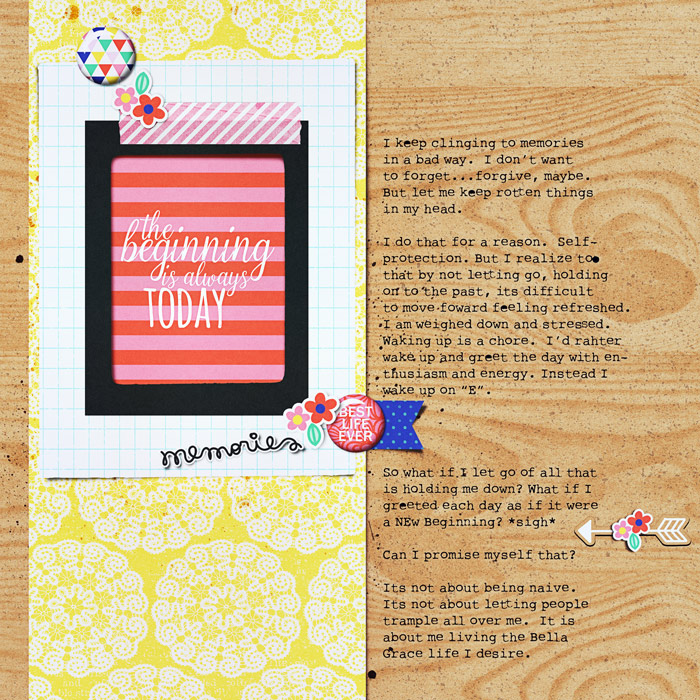 the
beginning
is always
TODAY
BEST
LIFE
EVER
memories
I keep clinging to memories
in a bad way. I don't want
to forget...forgive, maybe.
But let me keep rotten things
in my head.
I do that for a reason. Self-
protection. But I realize too
that by not letting go, holding
on to the past, its difficult
to move foward feeling refreshed.
I am weighed down and stressed.
Waking up is a chore. I'd rahter
wake up and greet the day with en-
thusiasm and energy. Instead I
wake up on "E".
So what if I let go of all that
is holding me down? What if I
greeted each day as if it were
a NEw Beginning? *sigh*
Can I promise myself that?
Its not about being naive.
Its not about letting people
trample all over me. It is
about me living the Bella
Grace life I desire.